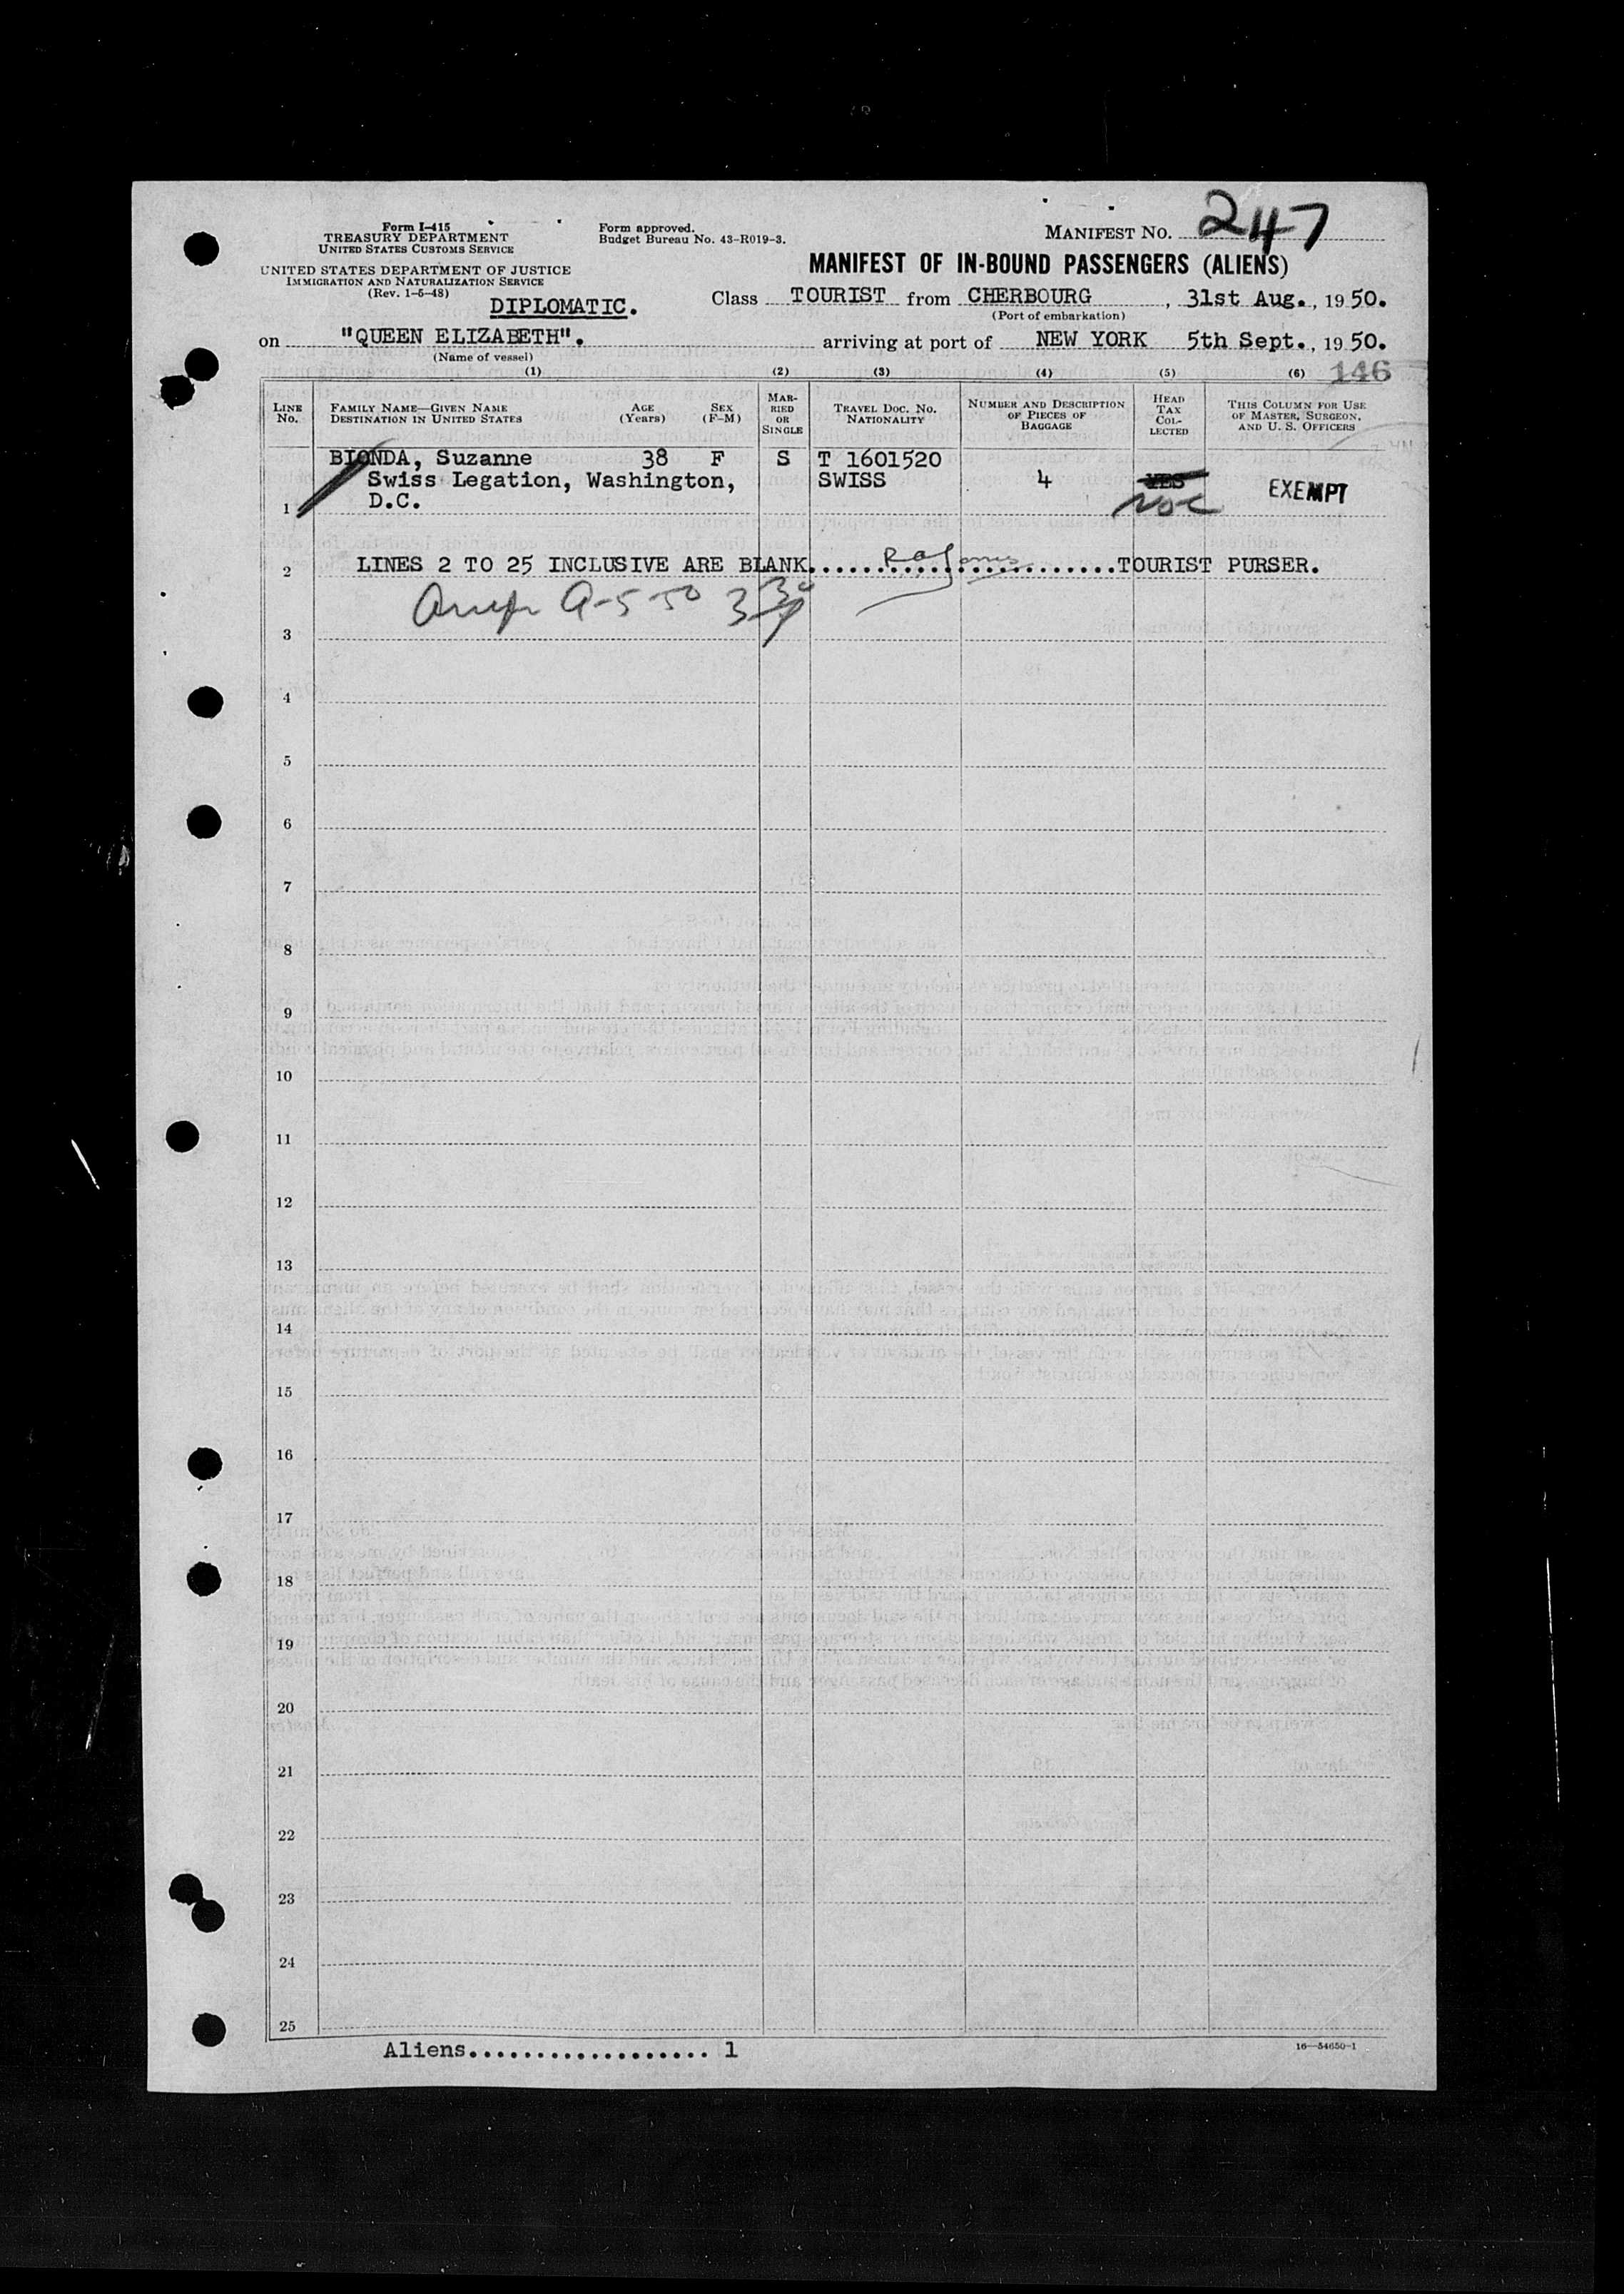 Form I-415
TREASURY DEPARTMENT
UNITED STATES CUSTOMS SERVICE
UNITED STATES DEPARTMENT OF JUSTICE
IMMIGRATION AND NATURALIZATION SERVICE
(Rev. 1-5-48)
Form approved.
Budget Bureau No. 43-R019-3.
MANIFEST NO. 247
MANIFEST OF IN-BOUND PASSENGERS (ALIENS)
DIPLOMATIC.
Class TOURIST from CHERBOURG, 31st Aug., 1950.
(Port of embarkation)
on "QUEEN ELIZABETH". arriving at port of NEW YORK 5th Sept., 1950.
(Name of vessel)
146
(1) (2) (3) (4) (5) (6)
LINE NO.
FAMILY NAME—GIVEN NAME
DESTINATION IN UNITED STATES
AGE (Years)
SEX (F-M)
MARRIED OR SINGLE
TRAVEL DOC. NO.
NATIONALITY
NUMBER AND DESCRIPTION OF PIECES OF BAGGAGE
HEAD TAX COLLECTED
THIS COLUMN FOR USE OF MASTER, SURGEON, AND U. S. OFFICERS
1 BIONDA, Suzanne 38 F S T 1601520
Swiss Legation, Washington, SWISS 4 YES EXEMPT
D.C.
2 LINES 2 TO 25 INCLUSIVE ARE BLANK..........................TOURIST PURSER.
9-5-50 3 30
3
4
5
6
7
8
9
10
11
12
13
14
15
16
17
18
19
20
21
22
23
24
25
Aliens.................. 1
16—54650-1